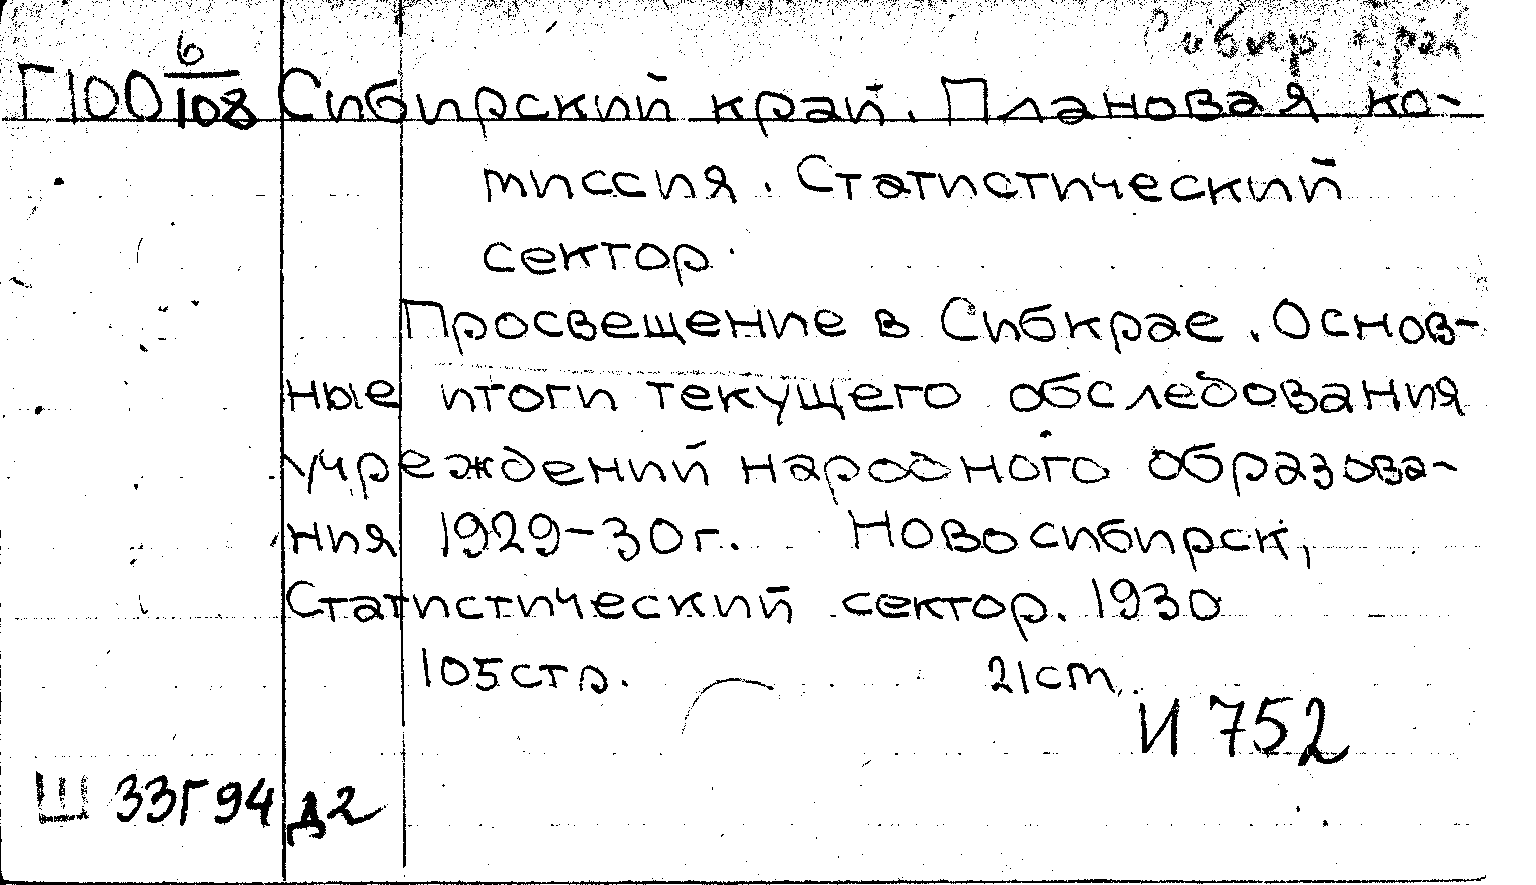 Сибир край
Г100 6/108 Сибирский край. Плановая ко-
миссия. Статистический
сектор.
Просвещение в Сибкрае. Основ-
ные итоги текущего обследования
учреждений народного образова-
ния 1929-30г. Новосибирск,
Статистический сектор. 1930
105стр. 21cm.
И 752
Ш 33Г94 д2